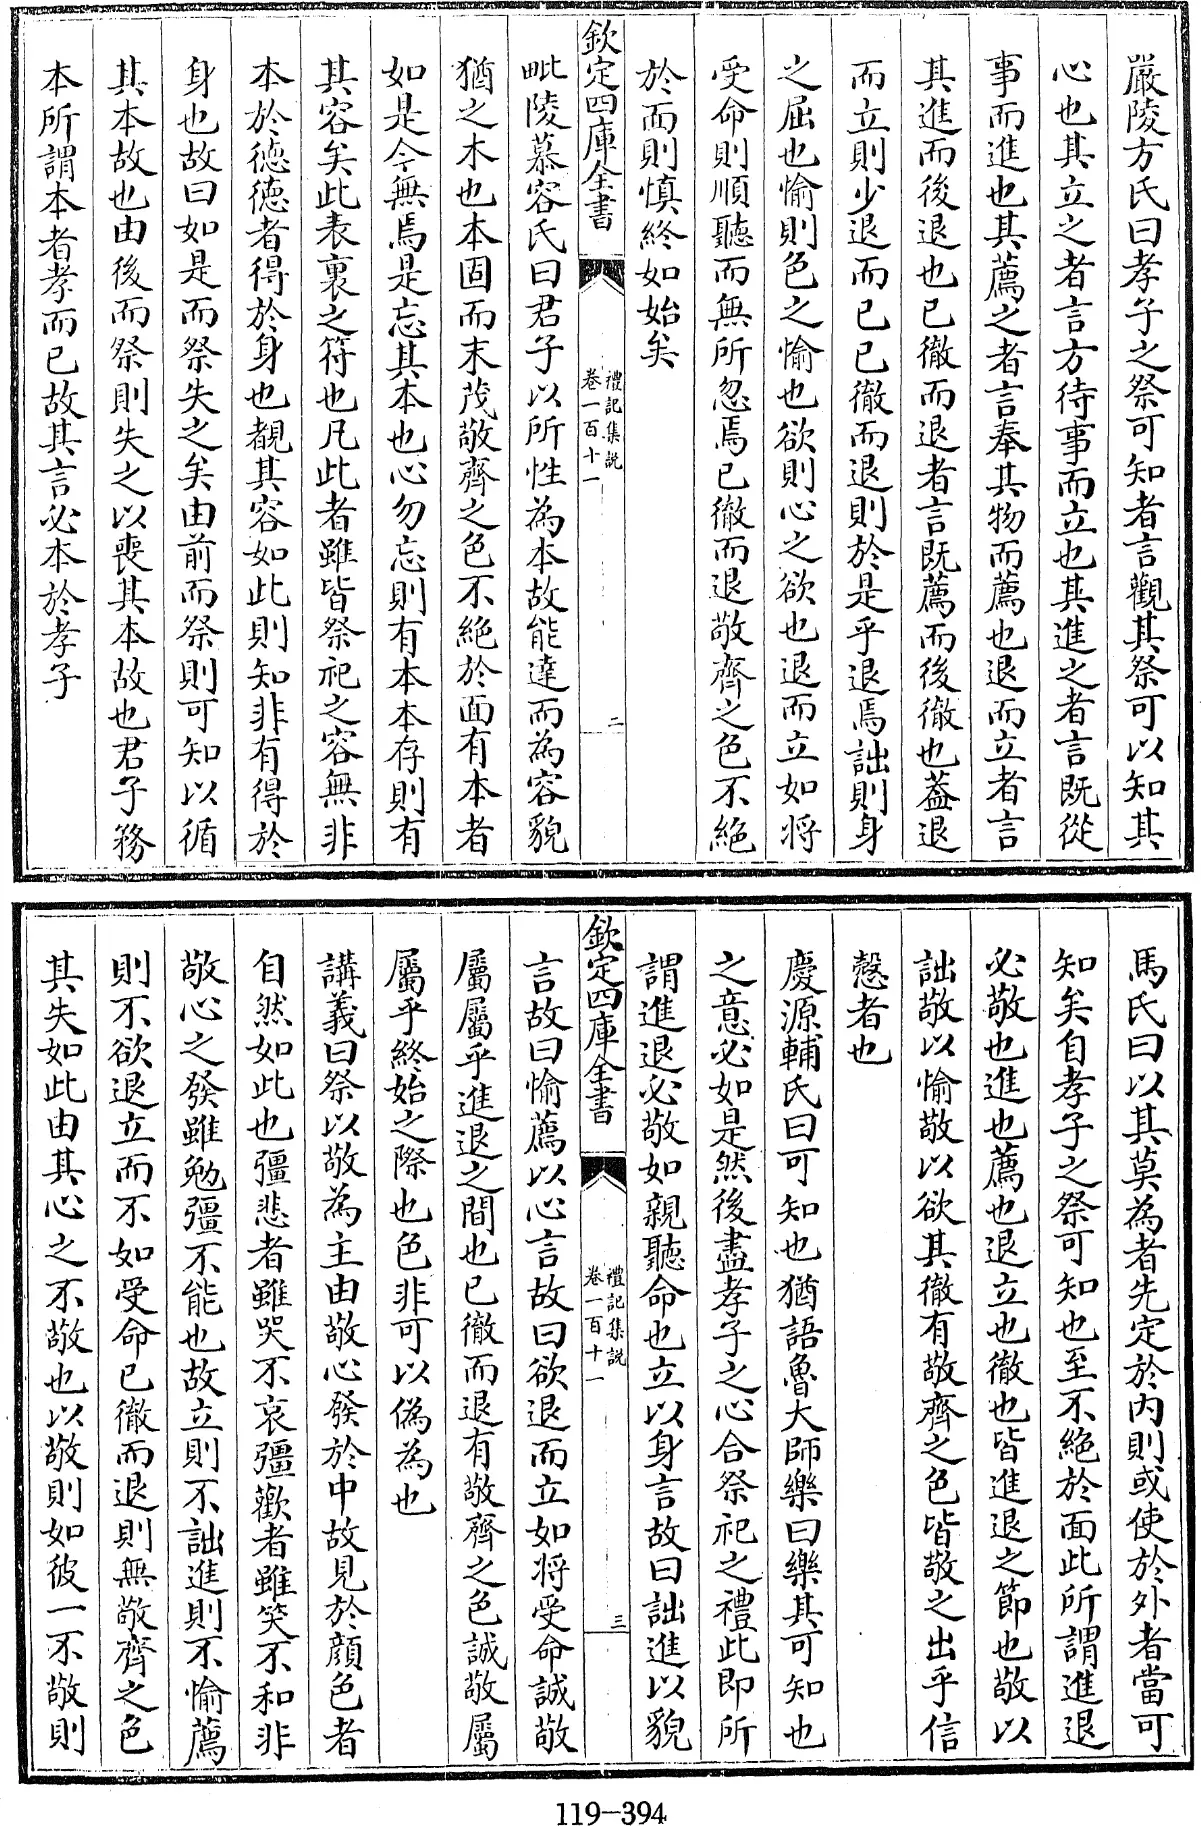 嚴陵方氏曰孝子之祭可知者言觀其祭可以知其
心也其立之者言方待事而立也其進之者言既從
事而進也其薦之者言奉其物而薦也退而立者言
其進而後退也已徹而退者言既薦而後徹也葢退
而立則少退而已已徹而退則於是乎退焉詘則身
之屈也愉則色之愉也欲則心之欲也退而立如将
受命則順聽而無所忽焉已徹而退敬齊之色不絶
於面則慎終如始矣
欽定四庫全書
禮記集説
卷一百十一
二
毗陵慕容氏曰君子以所性為本故能達而為容貌
猶之木也本固而末茂敬齊之色不絶於面有本者
如是今無焉是忘其本也心勿忘則有本本存則有
其容矣此表裏之符也凡此者雖皆祭祀之容無非
本於徳徳者得於身也覩其容如此則知非有得於
身也故曰如是而祭失之矣由前而祭則可知以循
其本故也由後而祭則失之以喪其本故也君子務
本所謂本者孝而已故其言必本於孝子
馬氏曰以其莫為者先定於内則或使於外者當可
知矣自孝子之祭可知也至不絶於面此所謂進退
必敬也進也薦也退立也徹也皆進退之節也敬以
詘敬以愉敬以欲其徹有敬齊之色皆敬之出乎信
慤者也
慶源輔氏曰可知也猶語魯大師樂曰樂其可知也
之意必如是然後盡孝子之心合祭祀之禮此即所
謂進退必敬如親聽命也立以身言故曰詘進以貌
欽定四庫全書
禮記集説
卷一百十一
三
言故曰愉薦以心言故曰欲退而立如将受命誠敬
屬屬乎進退之間也已徹而退有敬齊之色誠敬屬
屬乎終始之際也色非可以偽為也
講義曰祭以敬為主由敬心發於中故見於顔色者
自然如此也彊悲者雖哭不哀彊歡者雖笑不和非
敬心之發雖勉彊不能也故立則不詘進則不愉薦
則不欲退立而不如受命已徹而退則無敬齊之色
其失如此由其心之不敬也以敬則如彼一不敬則
119-394